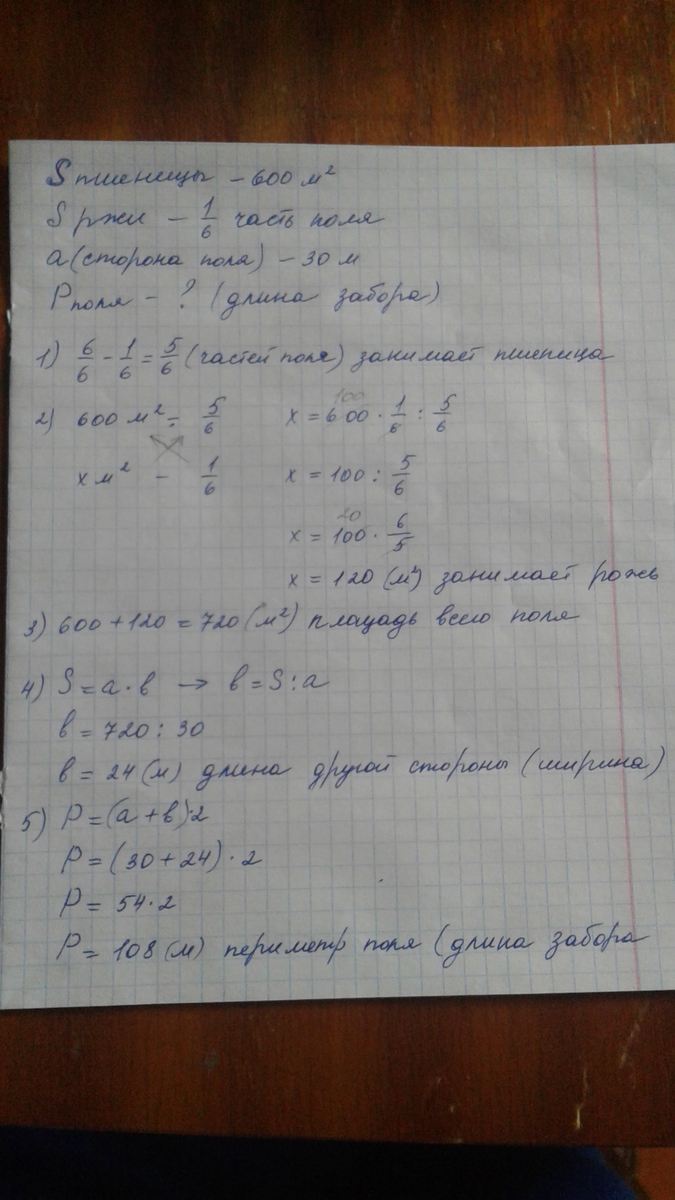 S пшеницы – 600 м²
S ржи – 1/6 часть поля
a (сторона поля) – 30 м
P поля – ? (длина забора)
1) 6/6 – 1/6 = 5/6 (частей поля) занимает пшеница
2) 600 м² – 5/6 x = 600 · 1/6 : 5/6
100
x м² – 1/6 x = 100 : 5/6
20
x = 100 · 6/5
x = 120 (м²) занимает рожь
3) 600 + 120 = 720 (м²) площадь всего поля
4) S = a · в → в = S : a
в = 720 : 30
в = 24 (м) длина другой стороны (ширина)
5) P = (a + в) · 2
P = (30 + 24) · 2
P = 54 · 2
P = 108 (м) периметр поля (длина забора